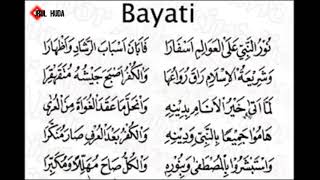 RUL HUDA
Bayati
نُوْرُ النَّبِيِّ عَلَى الْعَوَالِمِ اَسْفَارَا فَاَبَانَ اَسْبَابَ الرَّشَادِ وَاَظْهَارَا
وَشَرِيْعَةُ الْاِسْلَامِ رَاقَ رُوَاتُهَا وَالْكُفْرُ اَصْبَحَ جَيْشُهُ مُتَقَهْقِرَا
لَمَّا اَتٰى خَيْرُ الْاَنَامِ بِدِيْنِهِ وَانْحَلَّ مَا عَقَدَ الْغُوَاةُ مِنَ الْعُرٰى
هَامُوْا جَمِيْعًا بِالنَّبِيِّ وَدِيْنِهِ وَالْكُفْرُ بَعْدَ الْعُرْفِ صَارَ مُنَكَّرَا
وَاسْتَبْشَرُوْا بِالْمُصْطَفٰى وَبِنُوْرِهِ وَالْكُلُّ صَاحَ مُهَلِّلًا وَمُكَبِّرَا